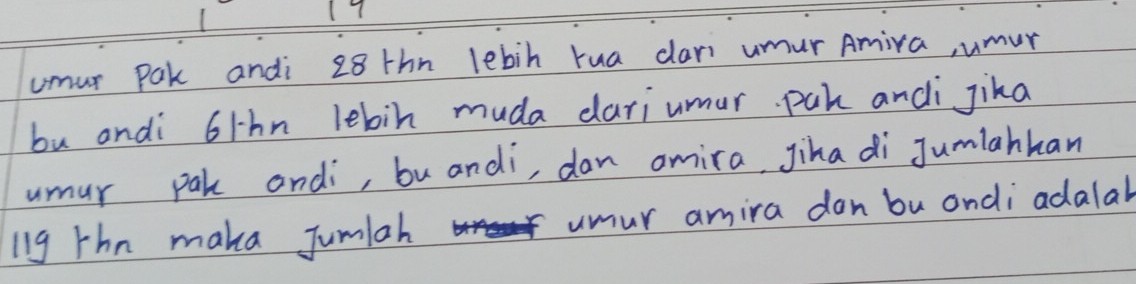 umur pak andi 28 thn lebih tua dari umur Amira, umur
bu andi 6 thn lebih muda dari umur pak andi jika
umur pak andi, bu andi, dan amira. Jika di Jumlahkan
119 thn maka Jumlah umur amira dan bu andi adalah